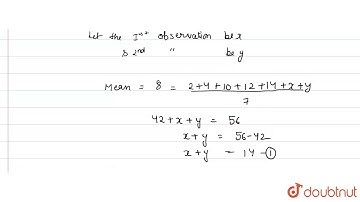 Let the Ist observation be x
& 2nd " be y
Mean = 8 = 2+4+10+12+14+x+y
7
42+x+y = 56
x+y = 56-42
x+y = 14 -①
doubtnut